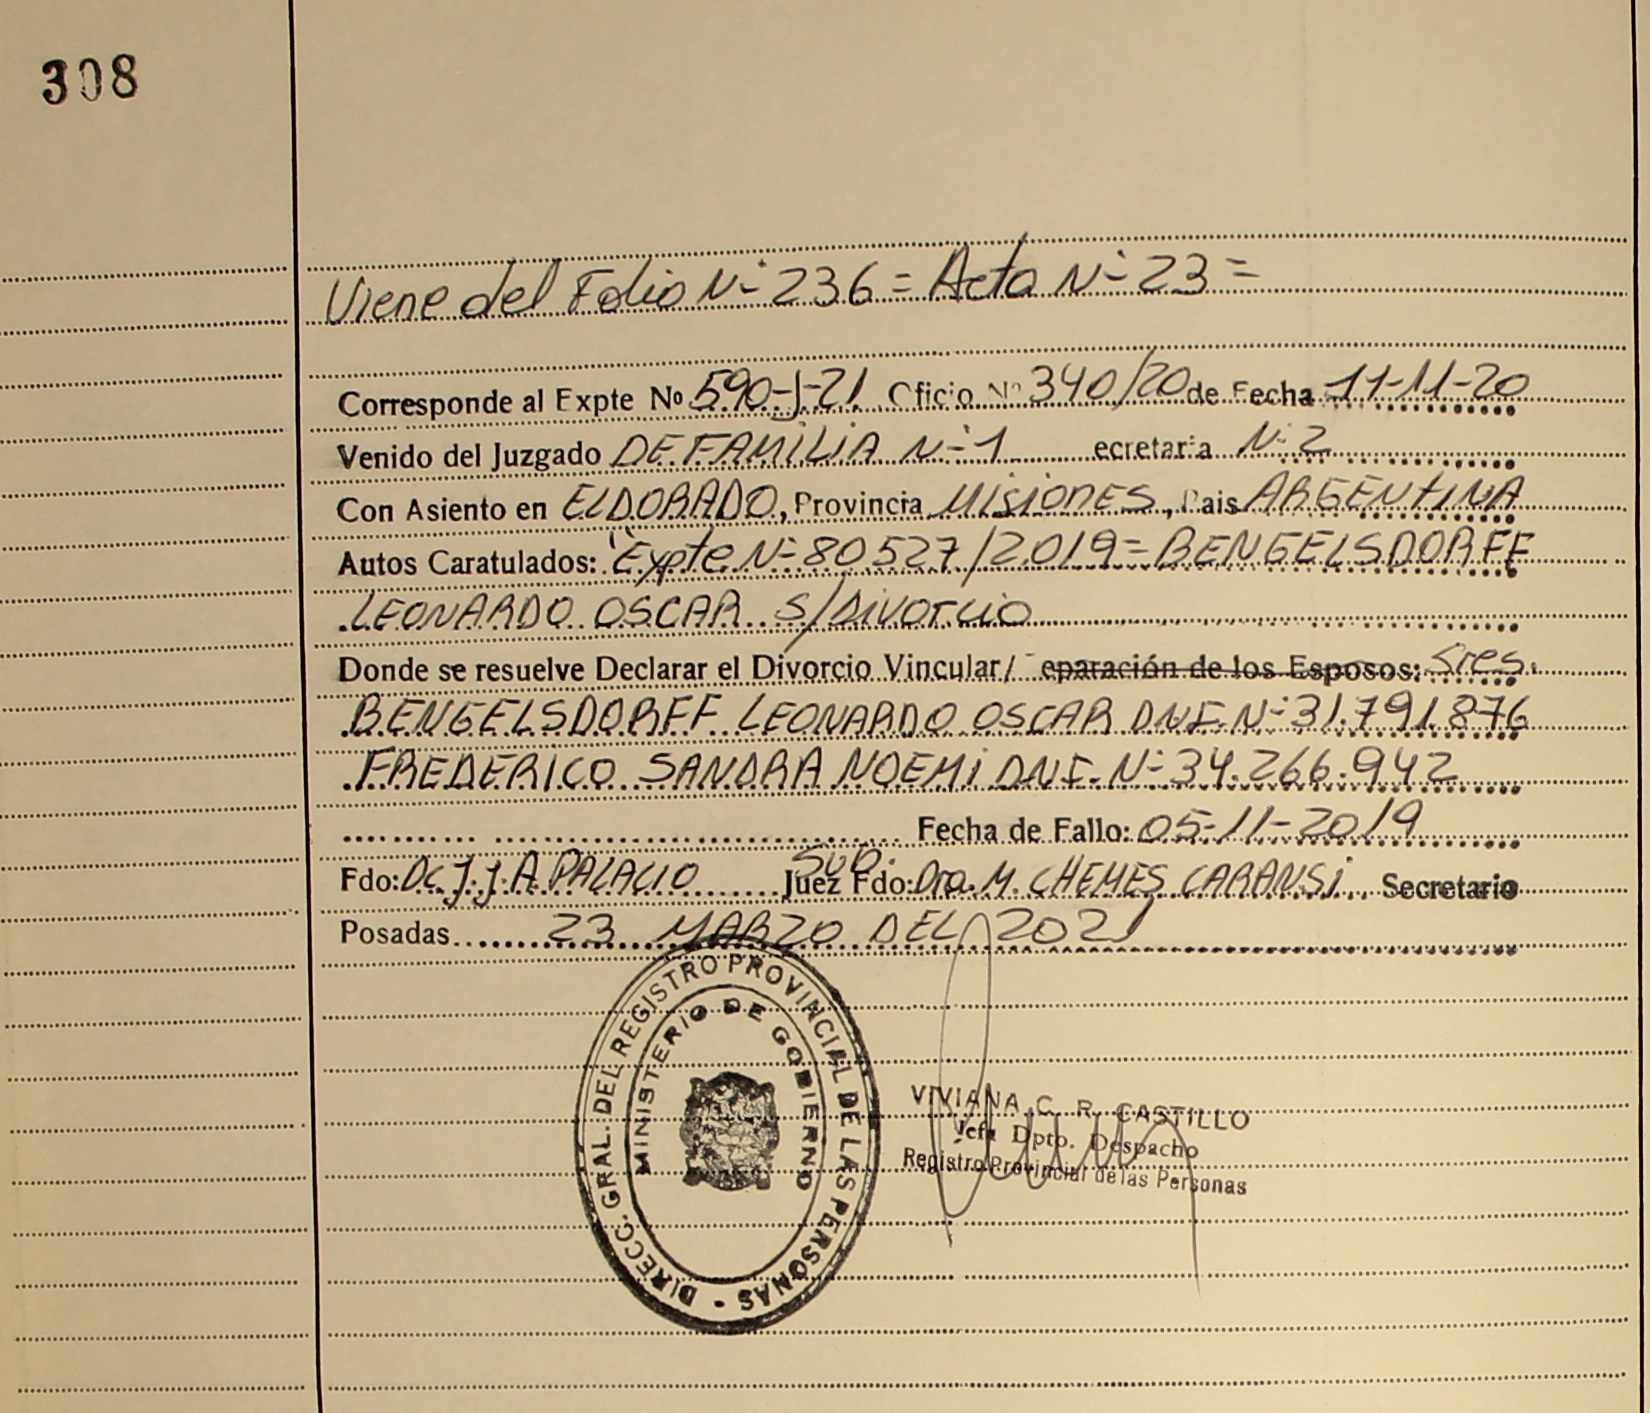 308
Viene del Folio Nº 236 = Acta Nº 23 =
Corresponde al Expte Nº 590-J-21 Oficio Nº 340/20 de Fecha 11-11-20
Venido del Juzgado DE FAMILIA Nº 1 ecretaria Nº 2
Con Asiento en ELDORADO, Provincia MISIONES, Pais ARGENTINA
Autos Caratulados: "Expte Nº 80527/2019 = BENGELSDORFF
LEONARDO OSCAR S/Divorcio
Donde se resuelve Declarar el Divorcio Vincular/ eparación de los Esposos: Sres.
BENGELSDORFF LEONARDO OSCAR DNI. Nº 31.791.876
FREDERICO SANDRA NOEMI DNI. Nº 34.266.942
Fecha de Fallo: 05-11-2019
Fdo: Dr. J. J. A PALACIO Juez Fdo: Sub. Dra. M. CHEMES CARANSI Secretario
Posadas 23 MARZO DEL 2021
DIRECC. GRAL. DEL REGISTRO PROVINCIAL DE LAS PERSONAS -
MINISTERIO DE GOBIERNO
VIVIANA C. R. CASTILLO
Jefa Dpto. Despacho
Registro Provincial de las Personas